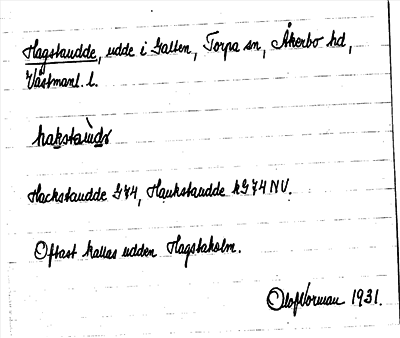 Hagstaudde, udde i Galten, Torpa sn, Åkerbo hd,
Västmanl. l.
Hackstaudde G74, Haukstaudde kG74NV.
Oftast kallas udden Hagstaholm.
Olof Norman 1931.